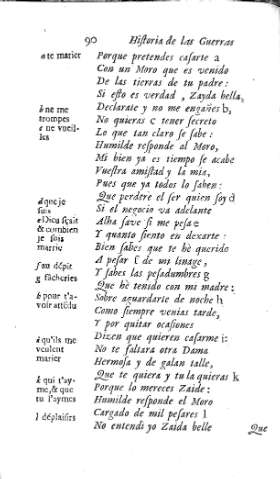 90 Historia de las Guerras
a te marier
Porque pretendes casarte a
Con un Moro que es venido
De las tierras de tu padre:
Si esto es verdad, Zayda bella,
b ne me
trompes
c ne vueil-
les
Declarate y no me engañes b,
No quieras c tener secreto
Lo que tan claro se sabe:
Humilde responde al Moro,
Mi bien ya es tiempo se acabe
Vuestra amistad y la mia,
Pues que ya todos lo saben:
d que je
suis
e Dieu sçait
& combien
je suis
marrie
Que perdere el ser quien soy d
Si el negocio va adelante
Alha save si me pesa e
Y quanto siento en dexarte:
Bien sabes que te hè querido
f en dépit
g fâcheries
A pesar f de mi linage,
Y sabes las pesadumbres g
Que hè tenido con mi madre:
h pour t'a-
voir attédu
Sobre aguardarte de noche h
Como siempre venias tarde,
Y por quitar ocasiones
i qu'ils me
veulent
marier
Dizen que quieren casarme i:
No te faltara otra Dama
Hermosa y de galan talle,
k qui t'ay-
me, & que
tu l'aymes
Que te quiera y tu la quieras k
Porque lo mereces Zaide:
Humilde responde el Moro
l déplaisirs
Cargado de mil pesares l
No entendi yo Zaida belle
Que